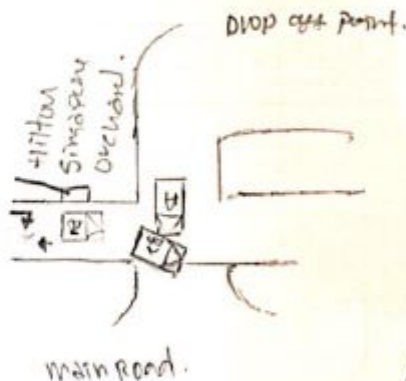 Drop off point.
Hilton
Singapore
Orchard.
main Road.